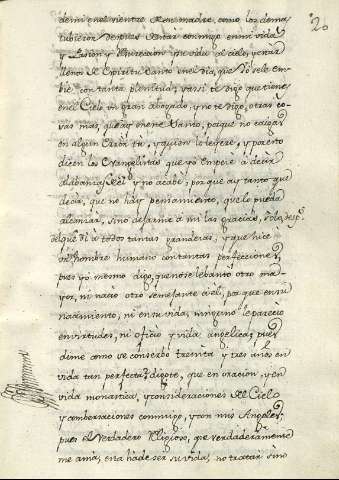 20
de mi en el vientre de su madre, como los demas
tubieron despues estar conmigo en mi vida
y Pasion y Resurecion y subida al cielo, y estar
llenos de Espiritu Santo en el dia, que Yo se le em-
bie con tanta plenitud, y assi te digo que tiene
en el Cielo un gran abogado, y no te digo, otras co-
sas mas, que ay en ese Santo, porque no caigas
en algun Error tu, y quien lo leyere, y por esto
dicen los Evangelistas que yo empece à decir
del, y no acabè; porque ay tanto que
decir, que no hay pensamiento, que lo pueda
alcanzar, sino darme à mi las gracias,
del que dì à todos tantas grandezas; y que hice
un hombre humano con tantas perfecciones,
pues yo mismo digo, que no se lebantò otro ma-
yor, ni naciò otro semejante à èl, porque en su
nacimiento, ni en su vida, ninguno le pareciò
en virtudes, ni oficio y vida angelica; pues
dime como se conserbò treinta y tres años en
vida tan perfecta? digote, que en oracion, y en
vida monastica, y consideraciones del Cielo
y comberaciones conmigo, y con mis Angeles,
pues el Verdadero Religioso, que verdaderamente
me ama, esta hà de ser su vida, no tratar sino